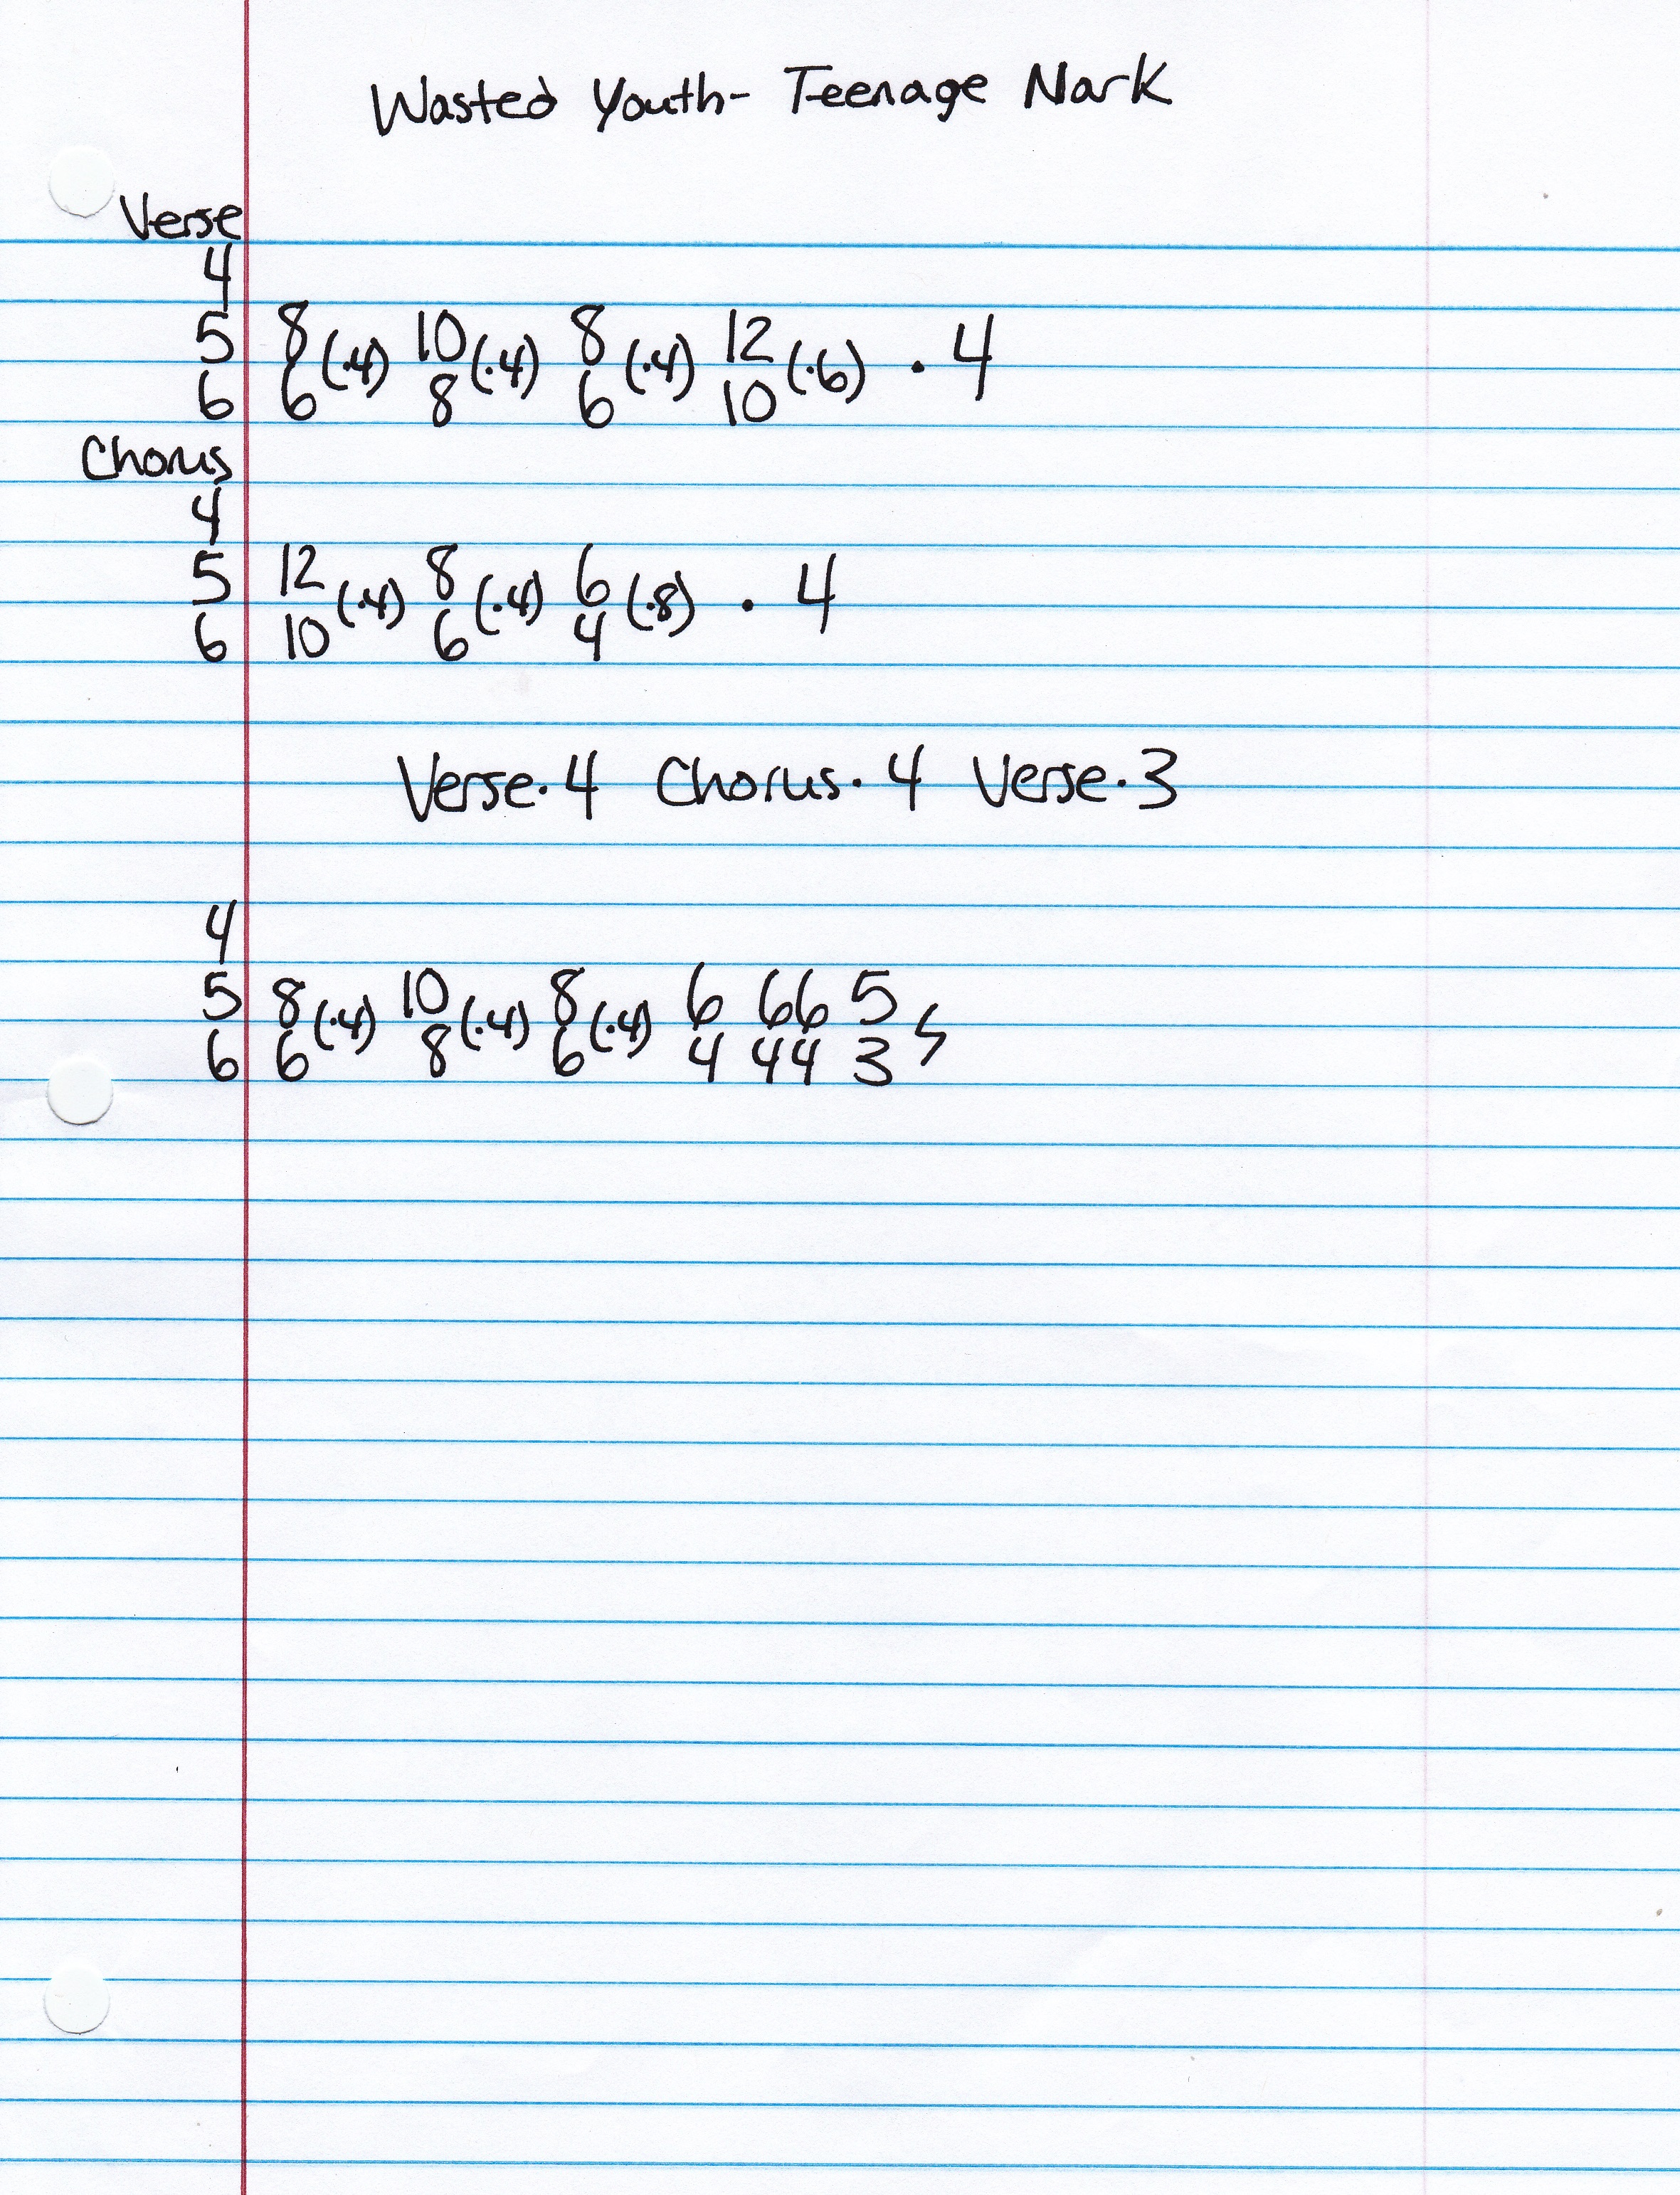 Wasted Youth- Teenage Nark
Verse
4
5 8 10 8 12
(·4) (·4) (·4) (·6) · 4
6 6 8 6 10
Chorus
4
5 12 8 6
(·4) (·4) (·8) · 4
6 10 6 4
Verse·4 Chorus·4 Verse·3
4
5 8 10 8 6 66 5
(·4) (·4) (·4)
6 6 8 6 4 44 3